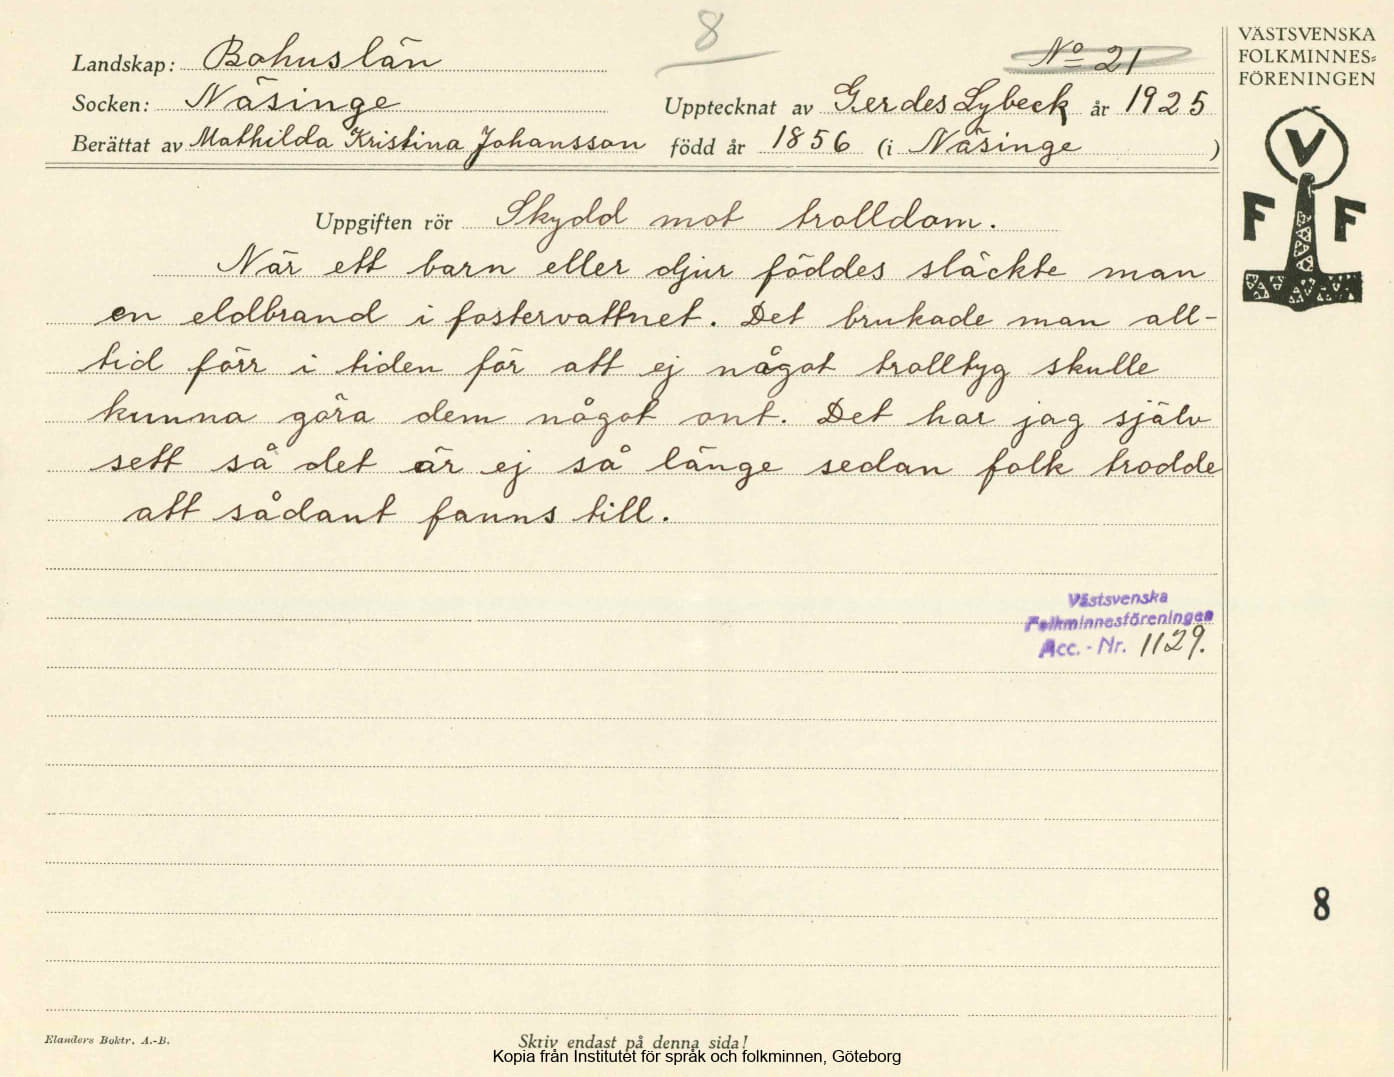 8
Landskap: Bohuslän
No 21
Socken: Näsinge
Upptecknat av Gerdes Lybeck år 1925
Berättat av Mathilda Kristina Johansson född år 1856 (i Näsinge )
Uppgiften rör Skydd mot trolldom.
När ett barn eller djur föddes släckte man
en eldbrand i fostervattnet. Det brukade man all-
tid förr i tiden för att ej något trolltyg skulle
kunna göra dem något ont. Det har jag själv
sett så det är ej så länge sedan folk trodde
att sådant fanns till.
VÄSTSVENSKA
FOLKMINNES-
FÖRENINGEN
V
F F
Västsvenska
Folkminnesföreningen
Acc. - Nr. 1129.
8
Elanders Boktr. A.-B.
Skriv endast på denna sida!
Kopia från Institutet för språk och folkminnen, Göteborg